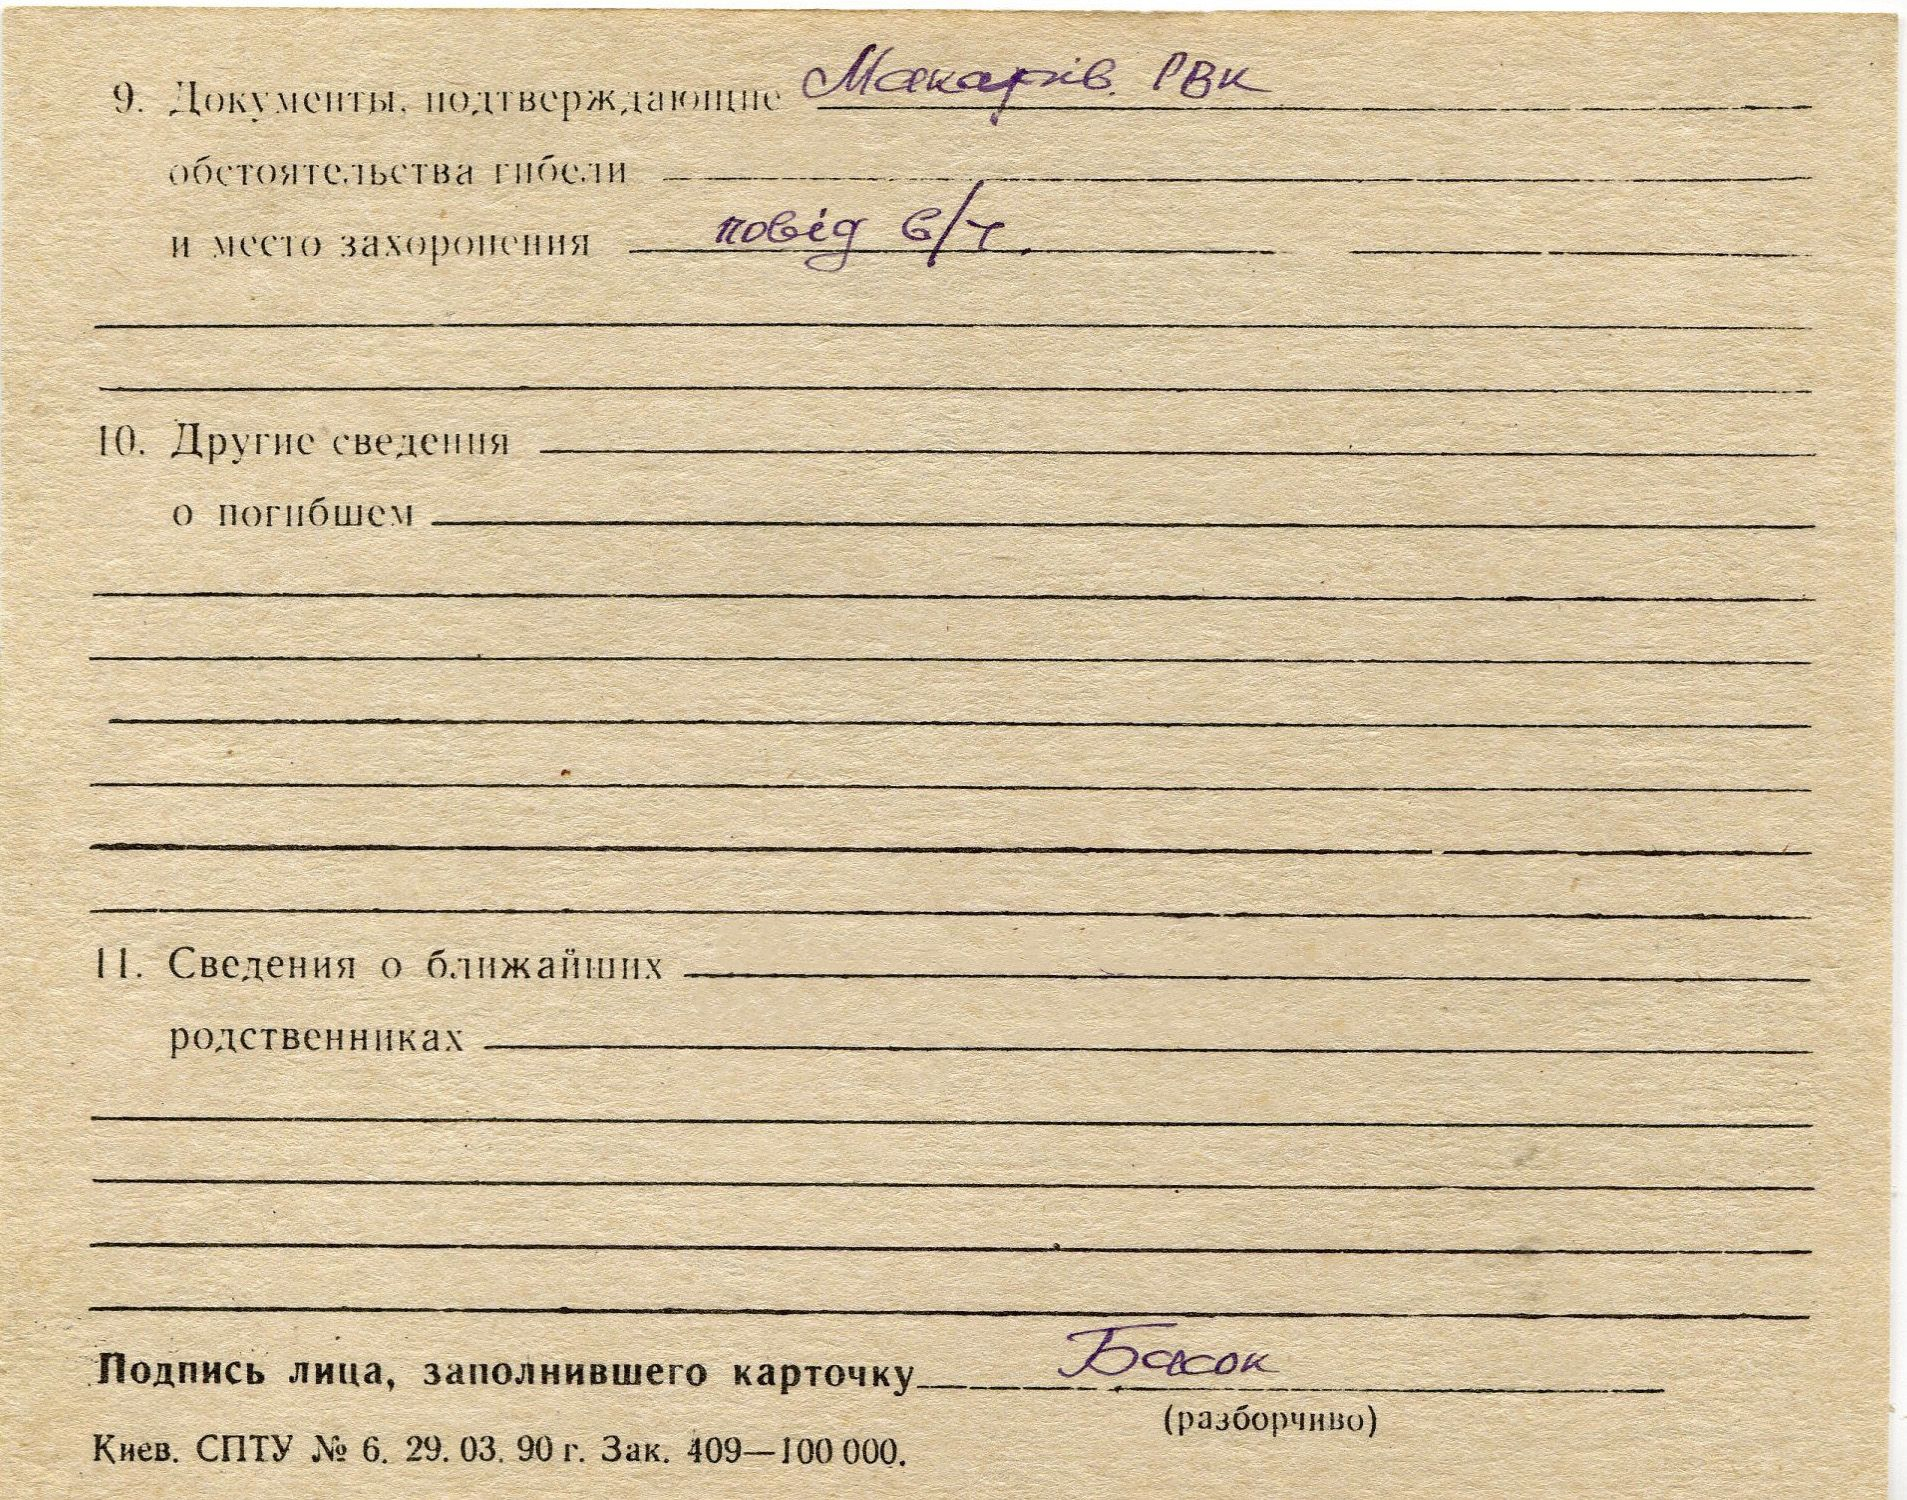 9. Документы, подтверждающие Макарів. РВК
обстоятельства гибели
и место захоронения повід в/ч.
10. Другие сведения
о погибшем
11. Сведения о ближайших
родственниках
Подпись лица, заполнившего карточку Басок
(разборчиво)
Киев. СПТУ № 6. 29. 03. 90 г. Зак. 409—100 000.